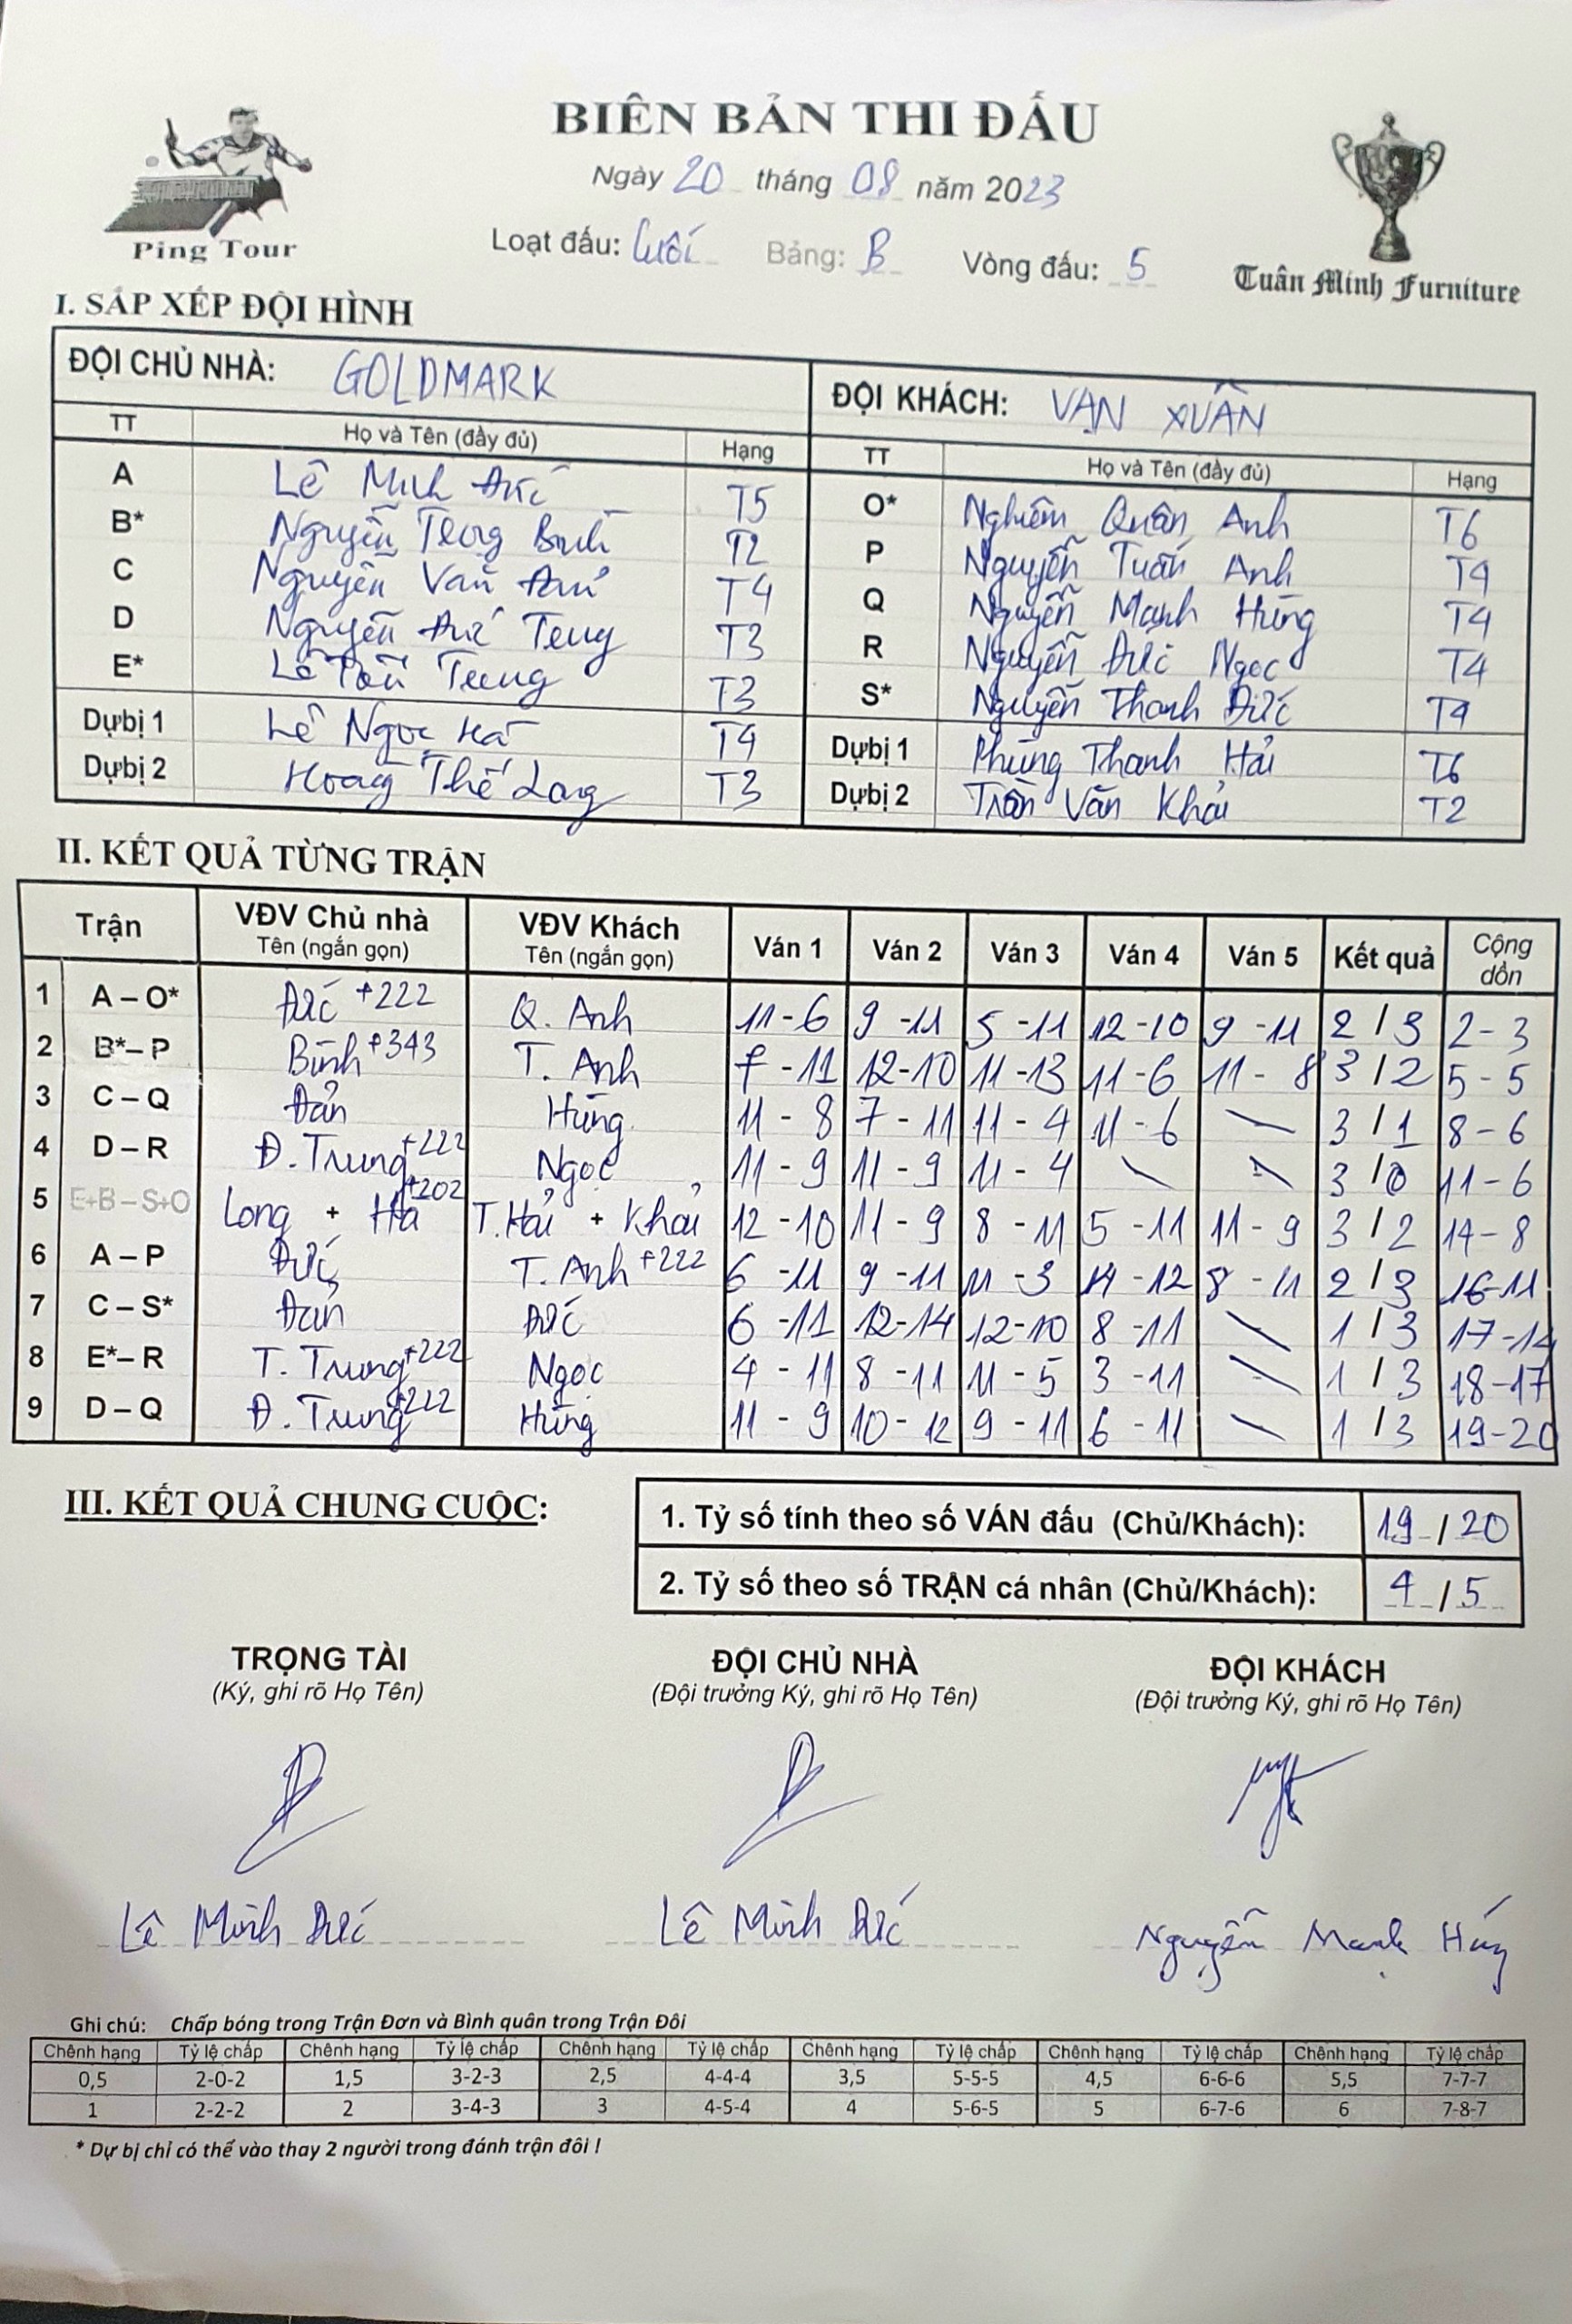 BIÊN BẢN THI ĐẤU
Ngày 20 tháng 08 năm 2023
Ping Tour
Loạt đấu: Cuối Bảng: B Vòng đấu: 5
Tuấn Minh Furniture
I. SẮP XẾP ĐỘI HÌNH
ĐỘI CHỦ NHÀ: GOLDMARK ĐỘI KHÁCH: VẠN XUÂN
TT Họ và Tên (đầy đủ) Hạng TT Họ và Tên (đầy đủ) Hạng
A Lê Minh Đức T5 O* Nghiêm Quân Anh T6
B* Nguyễn Trọng Bình T2 P Nguyễn Tuấn Anh T4
C Nguyễn Văn T4 Q Nguyễn Mạnh Hùng T4
D Nguyễn Đức Trung T3 R Nguyễn Đức Ngọc T4
E* Lê Trung T3 S* Nguyễn Thanh Đức T4
Dự bị 1 Lê Ngọc Hà T4 Dự bị 1 Phùng Thanh Hải T6
Dự bị 2 Hoàng Thế Long T3 Dự bị 2 Trần Văn Khải T2
II. KẾT QUẢ TỪNG TRẬN
Trận VĐV Chủ nhà Tên (ngắn gọn) VĐV Khách Tên (ngắn gọn) Ván 1 Ván 2 Ván 3 Ván 4 Ván 5 Kết quả Cộng dồn
1 A – O* Đức +222 Q. Anh 11-6 9-11 5-11 12-10 9-11 2/3 2-3
2 B*– P Bình +343 T. Anh 7-11 12-10 11-13 11-6 11-8 3/2 5-5
3 C – Q Đản Hùng 11-8 7-11 11-4 11-6 \ 3/1 8-6
4 D – R Đ. Trung +222 Ngọc 11-9 11-9 11-4 \ \ 3/0 11-6
5 E+B – S+O Long + Hà +202 T. Hải + Khải 12-10 11-9 8-11 5-11 11-9 3/2 14-8
6 A – P Đức T. Anh +222 6-11 9-11 11-3 14-12 8-11 2/3 16-11
7 C – S* Đản Đức 6-11 12-14 12-10 8-11 \ 1/3 17-14
8 E*– R T. Trung +222 Ngọc 4-11 8-11 11-5 3-11 \ 1/3 18-17
9 D – Q Đ. Trung +222 Hùng 11-9 10-12 9-11 6-11 \ 1/3 19-20
III. KẾT QUẢ CHUNG CUỘC:
1. Tỷ số tính theo số VÁN đấu (Chủ/Khách): 19/20
2. Tỷ số theo số TRẬN cá nhân (Chủ/Khách): 4/5
TRỌNG TÀI ĐỘI CHỦ NHÀ ĐỘI KHÁCH
(Ký, ghi rõ Họ Tên) (Đội trưởng Ký, ghi rõ Họ Tên) (Đội trưởng Ký, ghi rõ Họ Tên)
Lê Minh Đức Lê Minh Đức Nguyễn Mạnh Hùng
Ghi chú: Chấp bóng trong Trận Đơn và Bình quân trong Trận Đôi
Chênh hạng Tỷ lệ chấp Chênh hạng Tỷ lệ chấp Chênh hạng Tỷ lệ chấp Chênh hạng Tỷ lệ chấp Chênh hạng Tỷ lệ chấp Chênh hạng Tỷ lệ chấp
0,5 2-0-2 1,5 3-2-3 2,5 4-4-4 3,5 5-5-5 4,5 6-6-6 5,5 7-7-7
1 2-2-2 2 3-4-3 3 4-5-4 4 5-6-5 5 6-7-6 6 7-8-7
* Dự bị chỉ có thể vào thay 2 người trong đánh trận đôi !